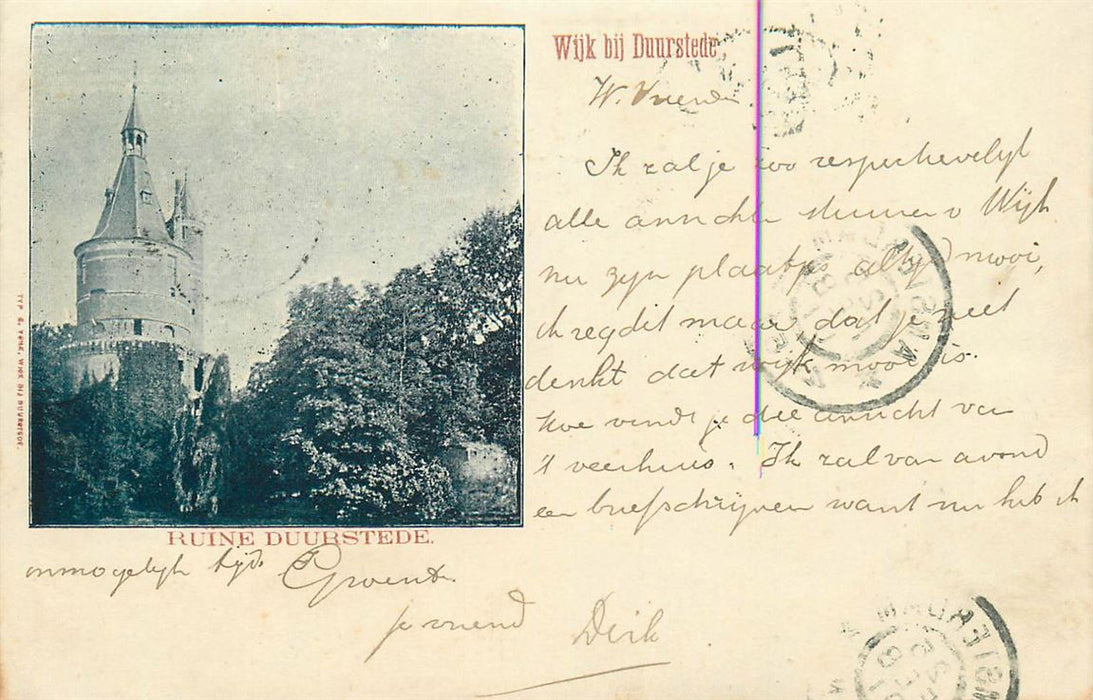 Wijk bij Duurstede,
W. Vriend
Ik zal je zoo respectievelijk
alle ansichten sturen v Wijk
nu zijn plaatjes altijd mooi,
ik zeg dit maar dat je niet
denkt dat wijk mooi is.
Hoe vindt je die ansicht van
't veerhuis. Ik zal van avond
een brief schrijven want nu heb ik
onmogelijk tijd. Groent
je vriend Dirk
RUINE DUURSTEDE.
WIJK BIJ DUURSTEDE.